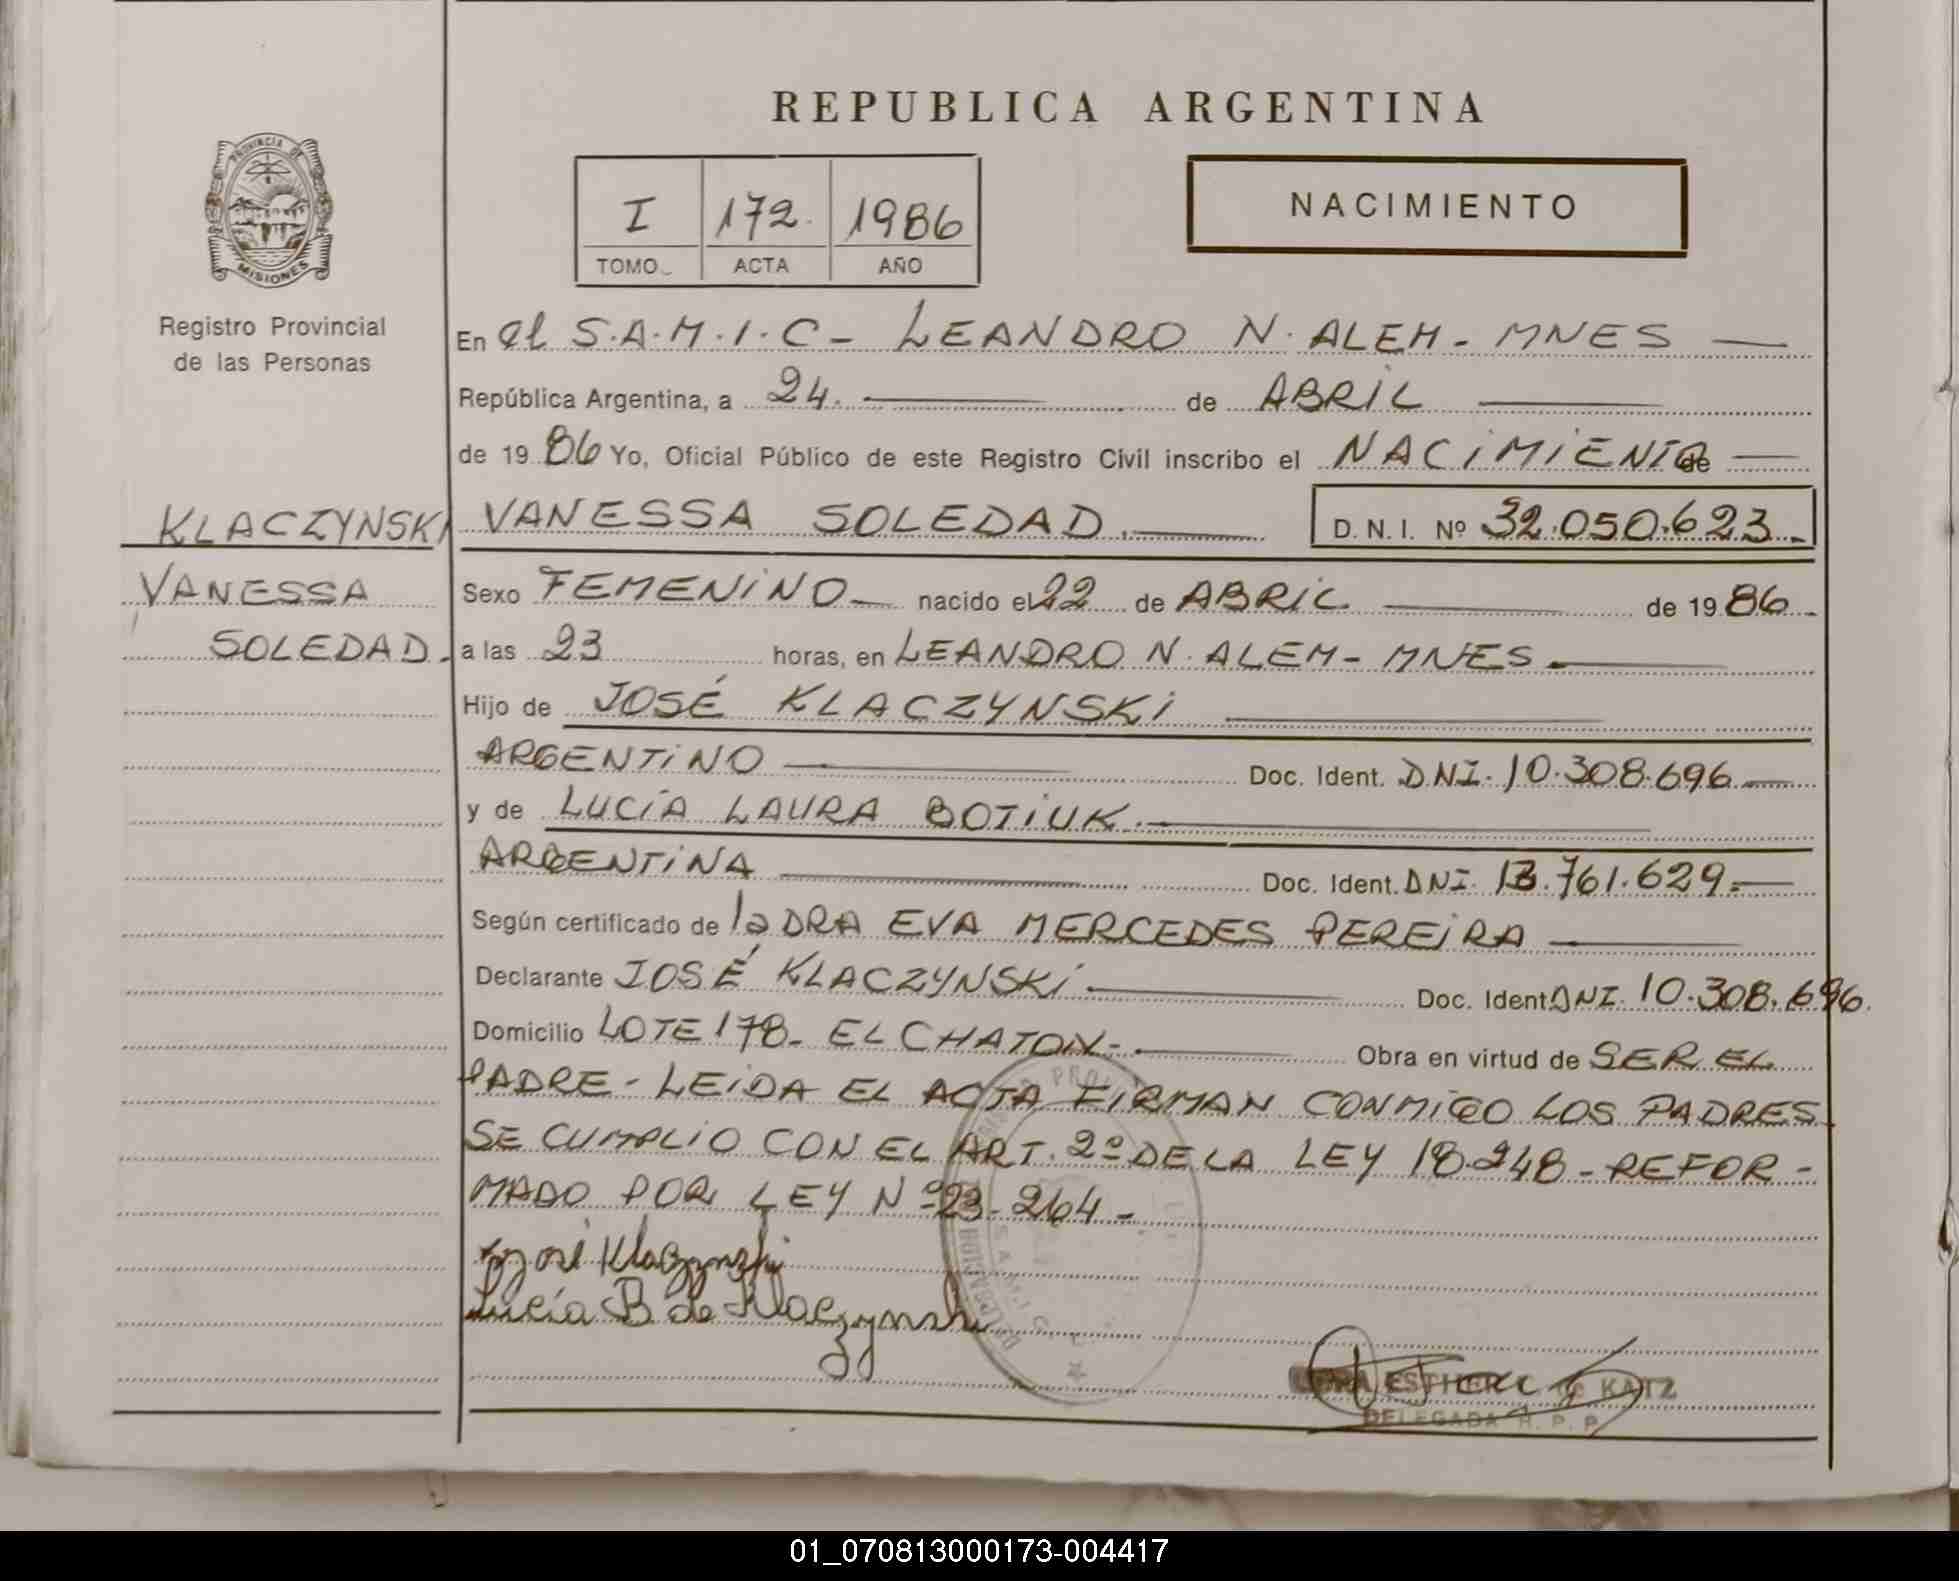 REPUBLICA ARGENTINA
PROVINCIA DE
MISIONES
I 172. 1986
TOMO ACTA AÑO
NACIMIENTO
Registro Provincial
de las Personas
KLACZYNSKI
VANESSA
SOLEDAD.
En el S.A.M.I.C - LEANDRO N. ALEM - MNES
República Argentina, a 24. de ABRIL
de 1986 Yo, Oficial Público de este Registro Civil inscribo el NACIMIENTO de
VANESSA SOLEDAD. D.N.I. Nº 32.050.623.
Sexo FEMENINO nacido el 22 de ABRIL de 1986
a las 23 horas, en LEANDRO N. ALEM - MNES.
Hijo de JOSÉ KLACZYNSKI
ARGENTINO Doc. Ident. DNI. 10.308.696.
y de LUCÍA LAURA BOTIUK.
ARGENTINA Doc. Ident. DNI. 13.761.629.
Según certificado de la DRA EVA MERCEDES PEREIRA
Declarante JOSÉ KLACZYNSKI Doc. Ident DNI. 10.308.696.
Domicilio LOTE 178 - EL CHATON. Obra en virtud de SER EL
PADRE - LEIDA EL ACTA FIRMAN CONMIGO LOS PADRES
SE CUMPLIO CON EL ART. 2º DE LA LEY 18.248 - REFOR-
MADO POR LEY Nº 23.264 -
José Klaczynski
Lucía B de Klaczynski
S.A.M.I.C.
ESTHER de KATZ
DELEGADA R. P. P.
01_070813000173-004417